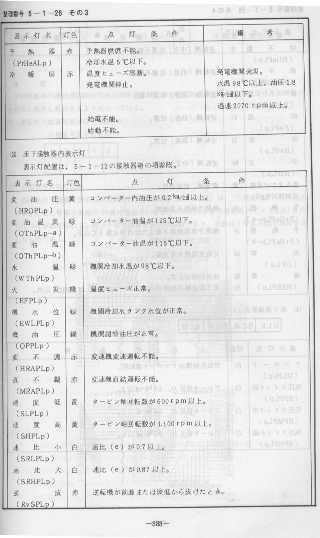 整理番号 5－1－25 その3
表示灯名 灯色 点灯条件 備考
予熱器 赤 予熱器燃焼不能。
(PrHeALp) 冷却水温5℃以下。
冷暖房 赤 温度ヒューズ溶断。 発電機関実装。
発電機関停止。 水温98℃以上、油圧1.8
過速2070rpm以上。
始動不能。
床下接触器内表示灯
表示灯配置は、5－1－22の接触器箱の項参照。
表示灯名 灯色 点灯条件
変油圧 黄 コンバーター内油圧が0.2㎏/㎠以上。
(HROPLp)
変油温 緑 コンバーター油温が125℃以下。
(OThPLp-a)
変油温 緑 コンバーター油温が115℃以下。
(OThPLp-b)
水温 緑 機関冷却水温が98℃以下。
(WThPLp)
火災 緑 温度ヒューズ正常。
(EFPLp)
機水位 緑 機関冷却水タンク水位が正常。
(EWLPLp)
機油圧 緑 機関潤滑油圧が正常。
(OPPLp)
変不調 赤 変速機変速運転不能。
(HRAPLp)
直不調 赤 変速機直結運転不能。
(MRAPLp)
速度低 黄 タービン軸回転数が600rpm以上。
(SLPLp)
速度高 黄 タービン軸回転数が1,100rpm以上。
(SHPLp)
速比小 白 速比(e)が0.7以上。
(SRLPLp)
速比大 白 速比(e)が0.87以上。
(SRHPLp)
逆転機が前進または後進から抜けたとき。
(RvSPLp)
－388－